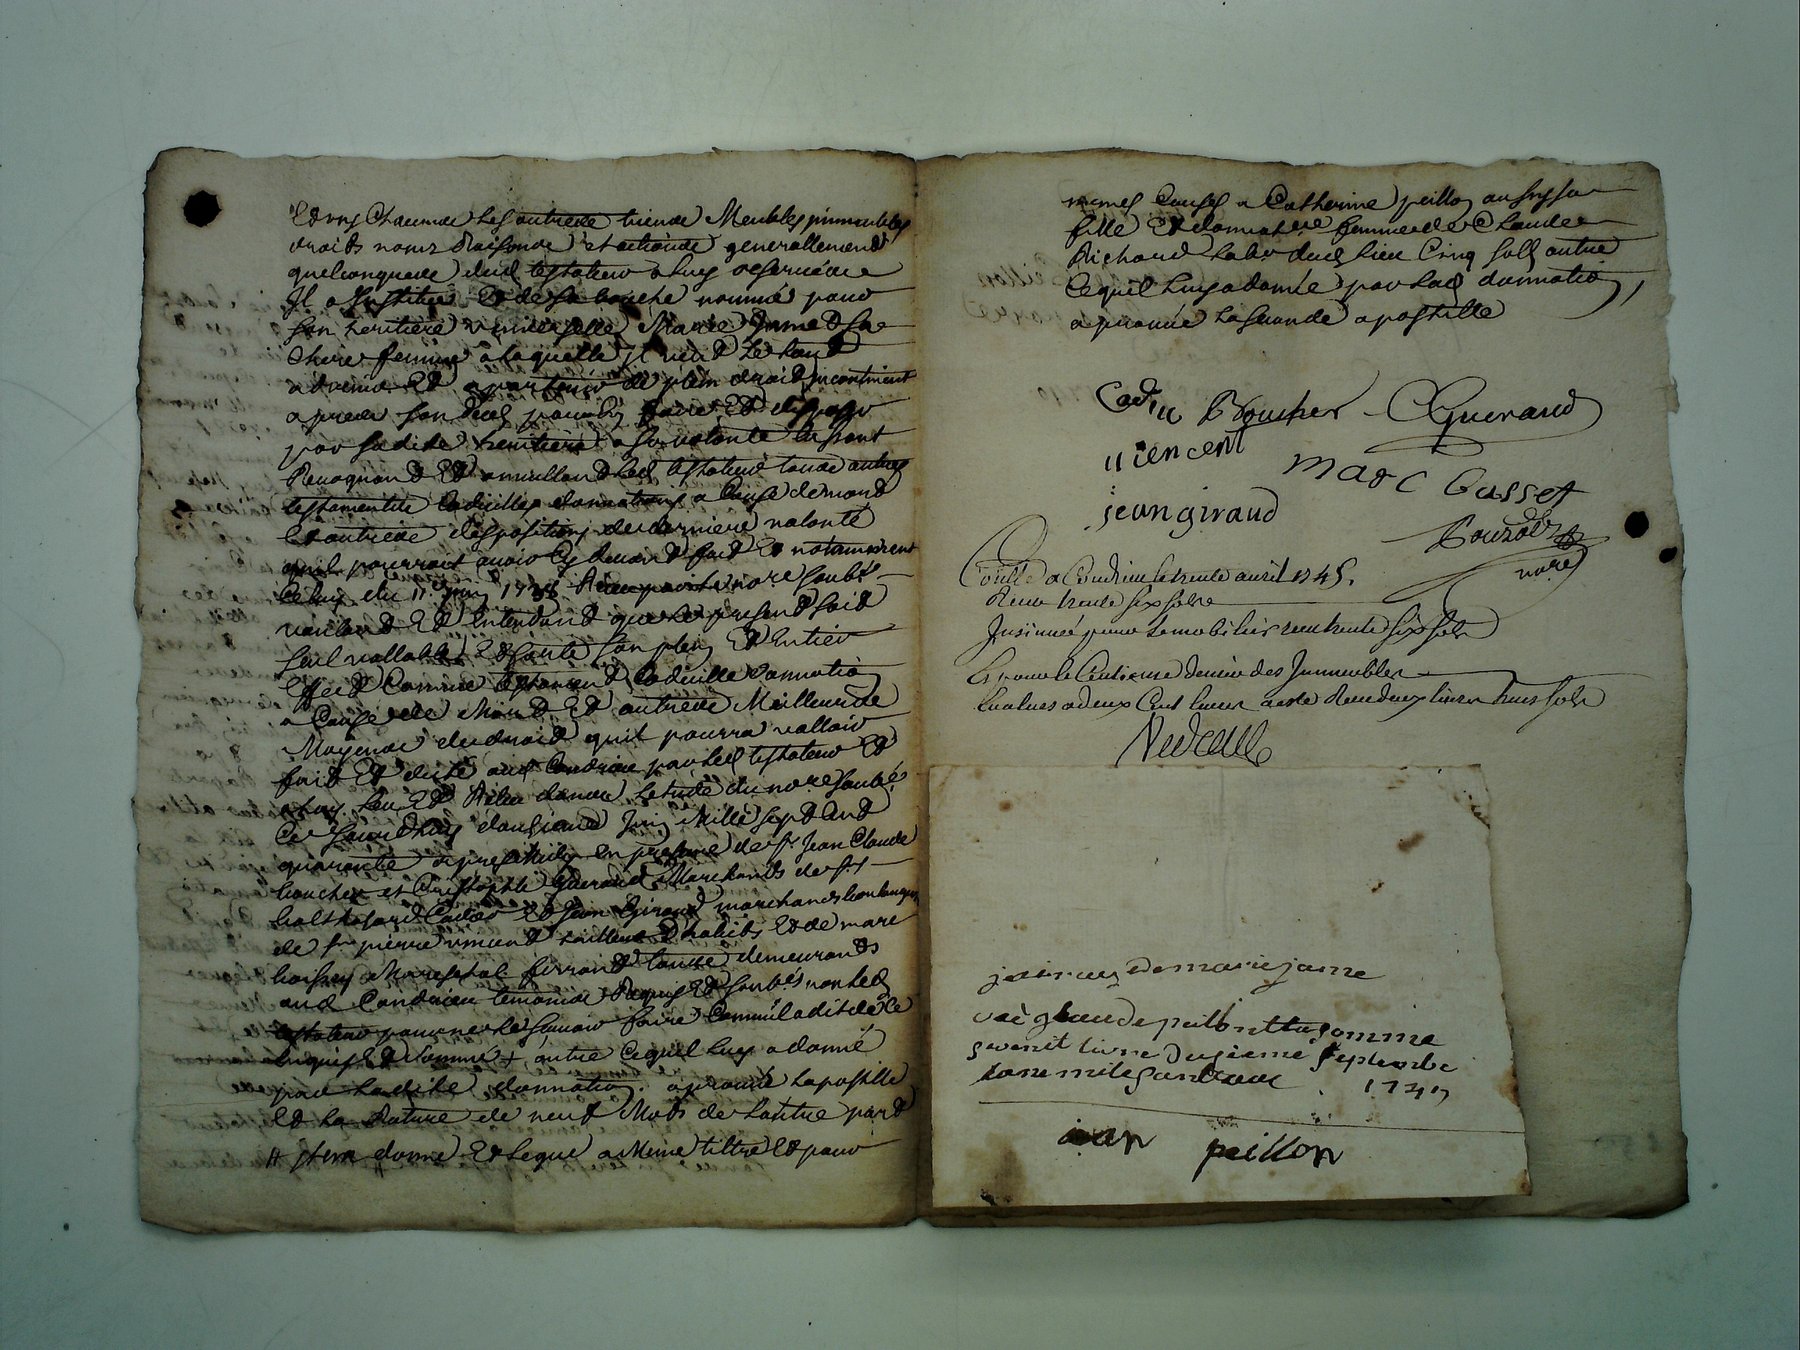 Et en chacune les autres biens Meubles immeubles
droits noms Raisons et actions generallement
quelconques dud testateur a luy
Il a Institué Et de sa bouche nommé pour
son heritiere universelle Marie Jame Sa
chere femme a laquelle Il veut
Et apartenir de plein droit incontinent
apres son deces pour En faire Et disposer
par sadite heritiere a sa volonté
Revoquand Et annulland led testateur tous autres
testaments Codicilles donnations a Cause de mort
Et autres dispositions de derniere volonté
quil pourroit avoir Cy devant fait Et notamment
Celuy du 11e Juin 1738 Receu par le nore soubsé
voulant Et Entendant que le present soit
seul vallable Et sorte son plein Et Entier
Effect Comme testament Codicille donnation
a Cause de Mort Et autres Meilleurs
Moyens de droit quil pourra valloir
fait Et dicté aud Condrieu par led testateur Et
a luy leu Et Releu dans letude du nore soubsé
Ce jourdhuy Juin Mille sept Cent
quarante apres midy En presence de sr Jean Claude
boucher et Cristophle Guerand Marchands de sr
balthesard Cadier Et Jean Giraud marchands boulangers
de sr pierre vincent tailleur Dhabits Et de marc
Mareschal ferrand tous demeurants
aud Condrieu temoins Requis Et soubsés non led
testateur pour ne le scavoir faire Comm il a dit de ce
Enquis Et sommé + autre Cequel luy a donné
par ladite donnation. aprouvé lapostille
Et la Rature de neuf Mots de lautre part
# Item donne Et legue a Meme tiltre Et pour
memes Causes a Catherine peillon aussy sa
fille Et donnatere femme de Claude
Richard labr dud lieu Cinq sols outre
Cequel luy a donné par lad donnation,
aprouvé la seconde apostille
Cadier Boucher CGuerand
uiencent marc Gusset
jean giraud
Bouzod
nore
Conllé a Condrieu le trente avril 1745.
Receu trente six sols
Insinué pour le mobilier receu trente six sols
Et pour le Centieme denier des Immeubles
Evalues a deux Cent livres Receu deux livres huit sols
je de marie jame
peillon la somme
livre septembre
1745
jean peillon